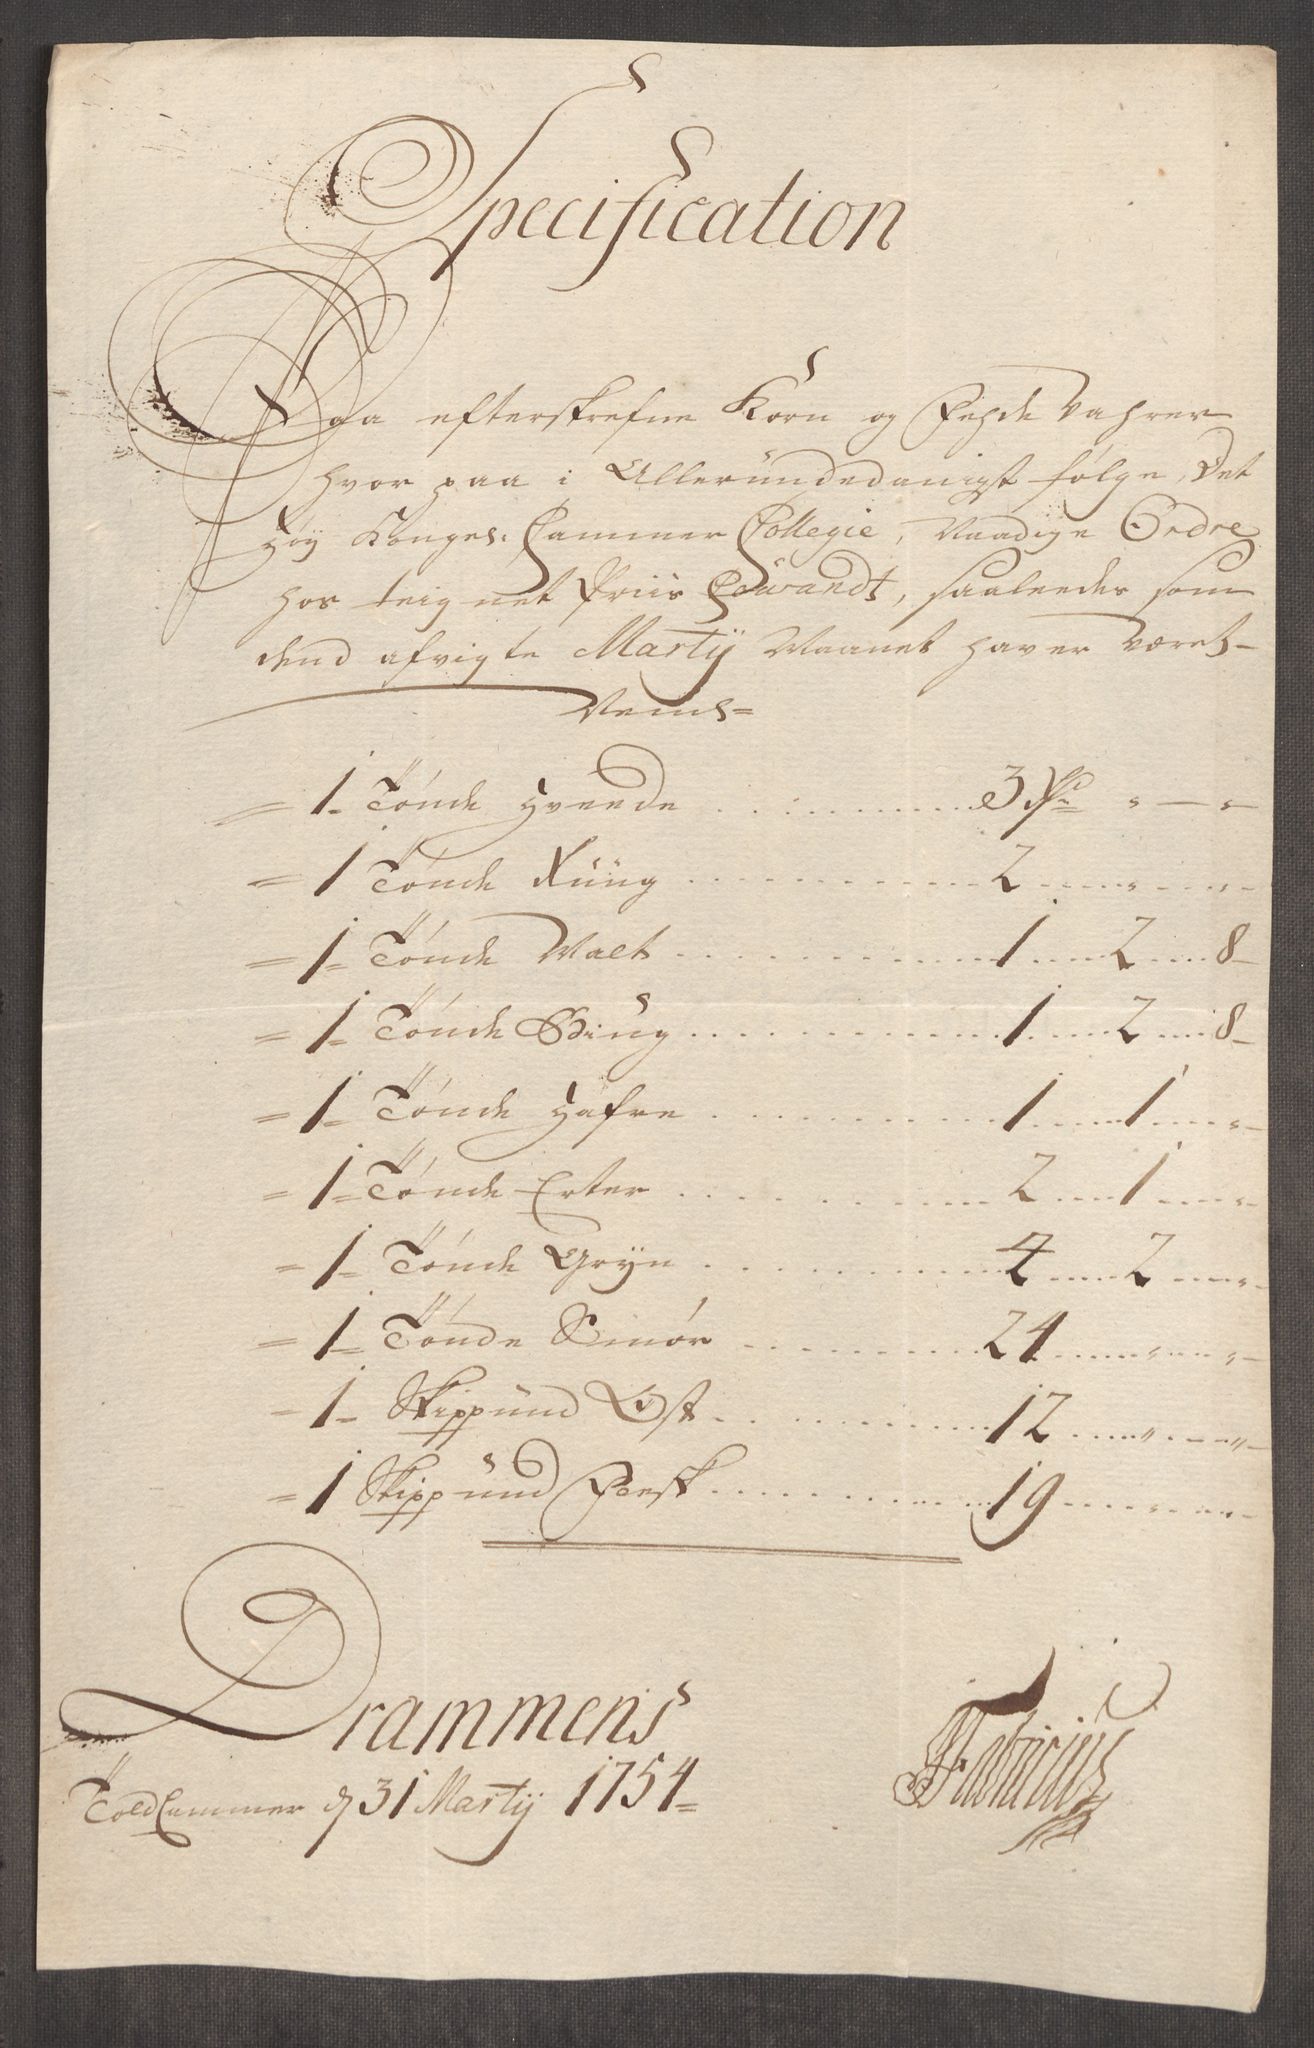 Specification
Paa efterskrefne Korn og Fehde Vahrer
hvor paa i Alleründedanigst følge, Det
Høy Konges: Cammer Collegie, Naadige Ordre
hos teignet Priis Courandt, saaleedes som
dend afvigte Martij Maanet haver været-
Neml=
= 1- Tønde Hveede ........ 3 Rd " — "
= 1 Tønde Rüüg ........ 2 ... " ... "
= 1- Tønde Malt ........ 1 ... 2 ... 8-
= 1- Tønde Biüg ........ 1 ... 2 ... 8-
= 1- Tønde Hafre ........ 1 ... 1 ... "
= 1- Tønde Erter ........ 2 ... 1 ... "
= 1- Tønde Gryn ........ 4 ... 2 ... "
= 1- Tønde Smør ........ 24 ... " ... "
- 1- Skippünd Ost ........ 12 ... " ... "
= 1 Skippünd Flesk ........ 19 ... " ... "
Drammens
Told Cammer d 31 Martij 1754=
Fabricius